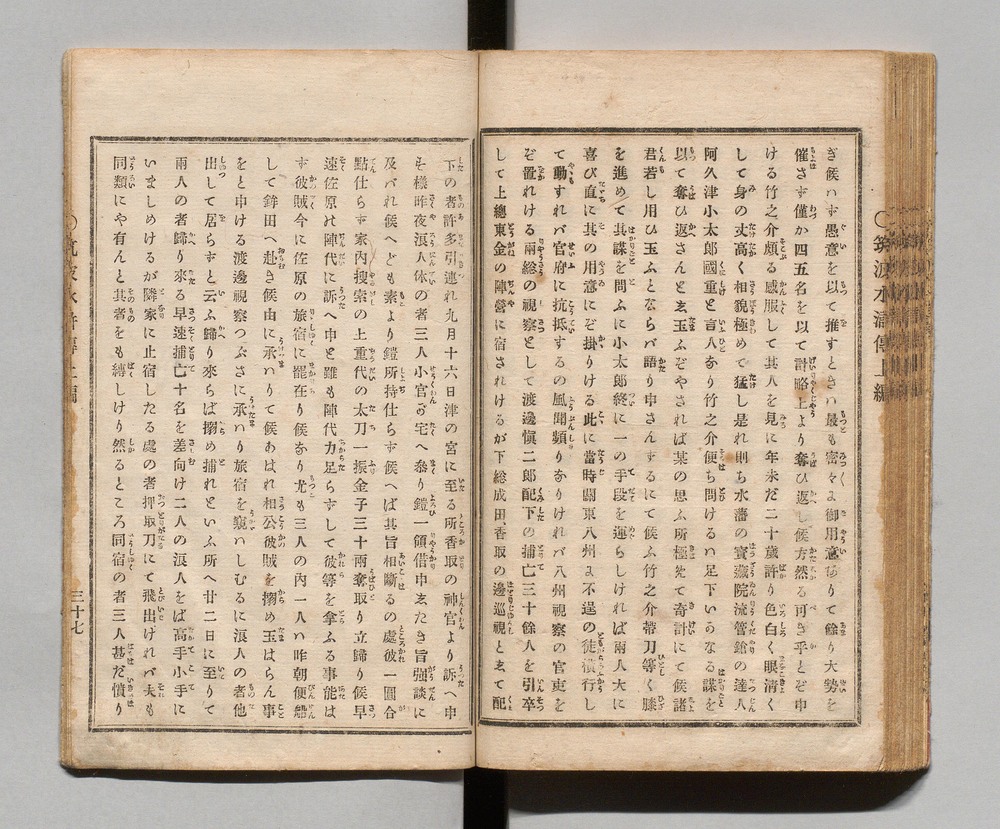 ぎ候ハず愚意を以て推すときハ最も密々よ御用意ありて餘り大勢を
催さず僅か四五名を以て計略上より奪ひ返し候方然る可き乎とぞ申
ける竹之介頗る感服して其人を見に年未だ二十歳許り色白く眼清く
して身の丈高く相貌極めて猛し是れ則ち水藩の寳藏院流管鎗の達人
阿久津小太郎國重と言人なり竹之介便ち問けるハ足下いかなる謀を
以て奪ひ返さんとゑ玉ふぞやされば某の思ふ所極先て奇計にて候諸
君若し用ひ玉ふとならバ語り申さんするにて候ふ竹之介帶刀等く膝
を進めて其謀を問ふに小太郎終に一の手段を運らしければ兩人大に
喜び直に其の用意にぞ掛りける此に當時關東八州よ不逞の徒横行し
て動すれバ官府に抗抵するの風聞頻りなりけれバ八州視察の官吏を
ぞ置れける兩総の視察として渡邊愼二郎配下の捕亡三十餘人を引卒
して上總東金の陣營に宿されけるが下総成田、香取の邊巡視とゑて配
〇筑波水滸傳上編
下の者許多引連れ九月十六日津の宮に至る所香取の神官より訴へ申
も樣昨夜浪人体の者三人小官の宅へ參り鎧一領借申ゑたき旨強談に
及バれ候へども素より鎧所持仕らず候へば其旨相斷るの處彼一圓合
點仕らず家内搜索の上重代の太刀一振金子三十兩奪取り立歸り候早
速佐原の陣代に訴へ申と雖も陣代力足らずして彼等を拿ふる事能は
ず彼賊今に佐原の旅宿に罷在り候なり尤も三人の内一人ハ昨朝便船
して鉾田へ赴き候由に承ハりて候あはれ相公彼賊を搦め玉はらん事
をと申ける渡邊視察つぶさに承ハり旅宿を窺ハしむるに浪人の者他
出して居らずと云ふ歸り來らば搦め捕れといふ所へ廿二日に至りて
兩人の者歸り來る早速捕亡十名を差向け二人の浪人をば高手小手に
いましめけるが隣家に止宿したる處の者押取刀にて飛出けれバ夫も
同類にや有んと其者をも縛しけり然るところ同宿の者三人甚だ憤り
〇筑波水滸傳上編
三十七